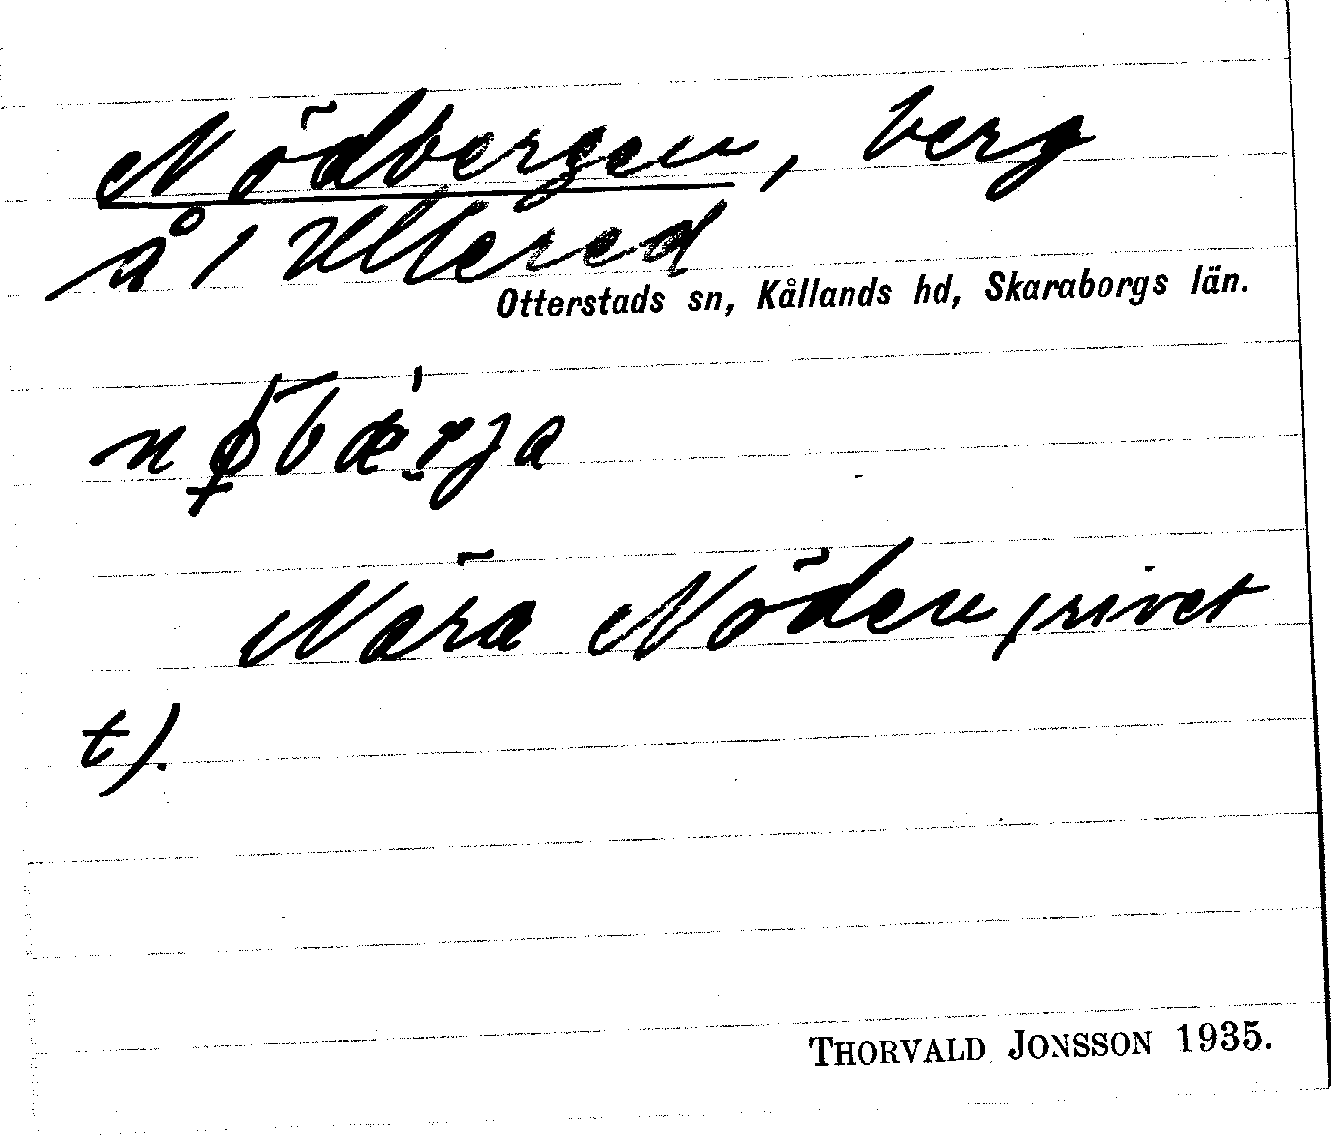 Nödbergen, berg
å 1 Ullered
Otterstads sn, Kållands hd, Skaraborgs län.
Nära Nöden, rivet
t).
THORVALD JONSSON 1935.